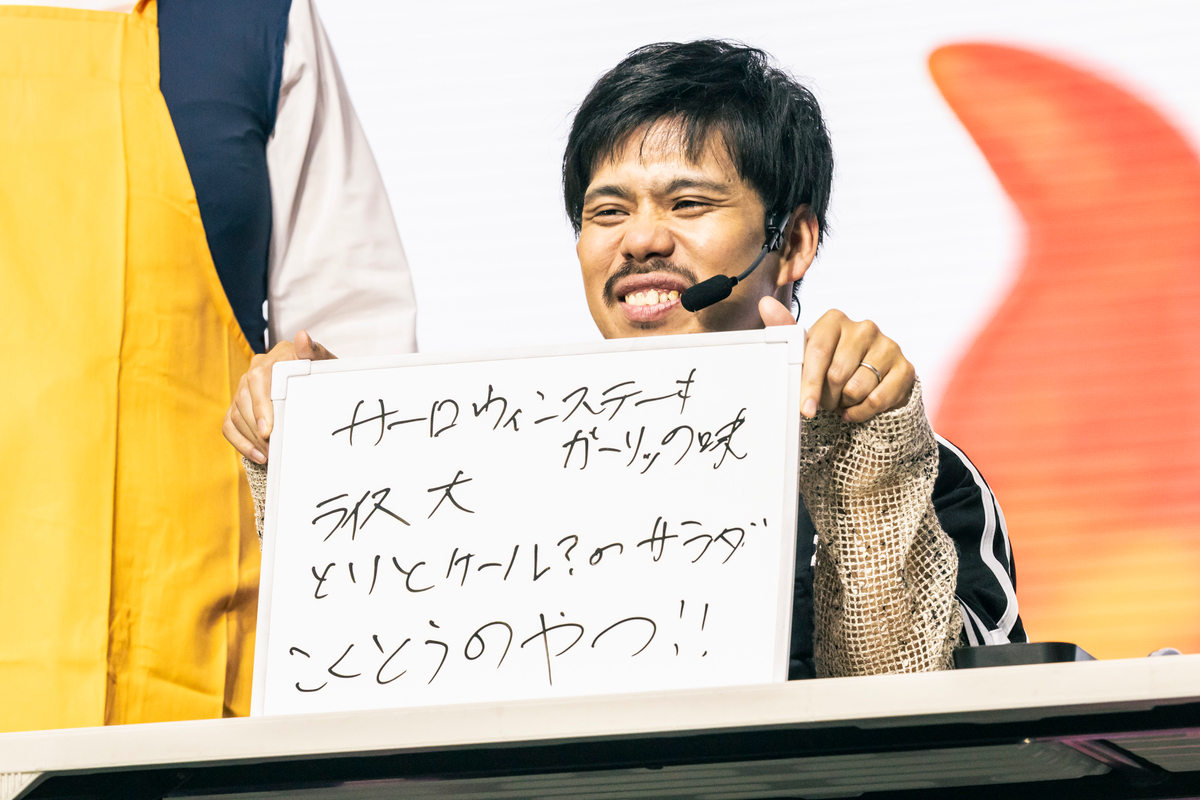 サーロウィンステーキ
ガーリックの味
ライス 大
とりとケール?のサラダ
こくとうのやつ!!